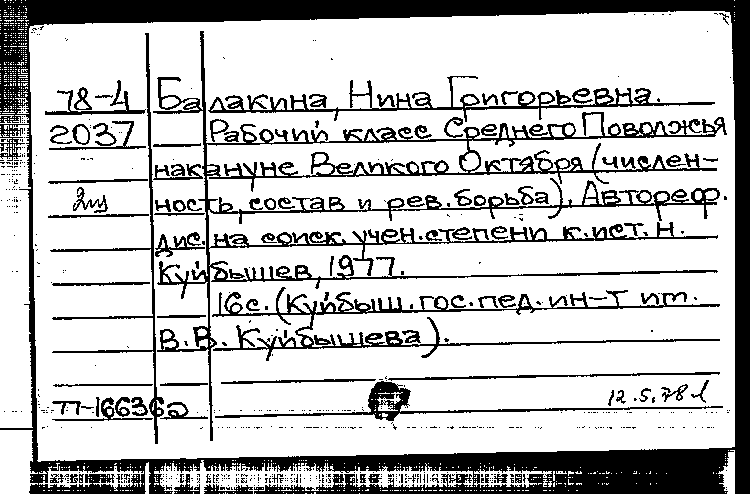 78-4 Балакина, Нина Григорьевна.
2037 Рабочий класс Среднего Поволжья
накануне Великого Октября (числен-
ность, состав и рев. борьба). Автореф.
дис. на соиск. учен. степени к. ист. н.
Куйбышев, 1977.
16с. (Куйбыш. гос. пед. ин-т им.
В.В. Куйбышева).
77-16636а
12.5.78